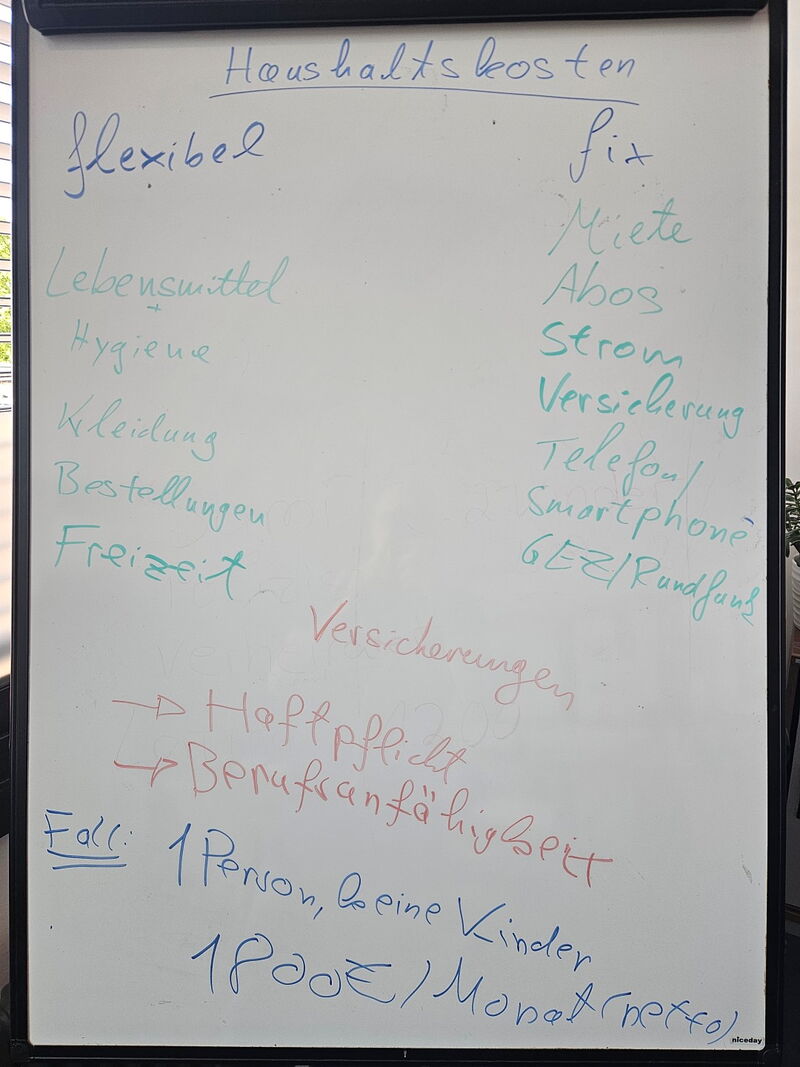 Haushaltskosten
flexibel
fix
Lebensmittel
+
Hygiene
Kleidung
Bestellungen
Freizeit
Miete
Abos
Strom
Versicherung
Telefon/
Smartphone
GEZ/Rundfunk
Versicherungen
→ Haftpflicht
→ Berufsanfähigkeit
Fall: 1 Person, keine Kinder
1800€/Monat (netto)
niceday